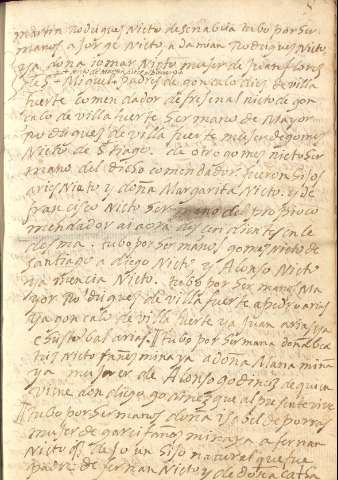 martin Rodrigues Nieto desinabria tubo por her
manos a Jorge Nieto, a damian Rodrigues Nieto
ya doña iomar Nieto mujer de Juan flores
de S. Miguel padres de gonçalo dies de villa
fuerte Comendador de fresinal nieto de gon
çalo de villa fuerte hermano de Mayor
Rodrigues de villa fuerte mujer de gomes
Nieto de S.tiago. de otro gomes nieto her
mano del dicho comendador. fueron hijos
aries Nieto y doña Margarita Nieto. y de
francisco Nieto hermano del proprio co
mendador ai aora descendientes en le
desma. tubo por hermanos gomes nieto de
Santiago a diego Nieto y Alonso Nieto
Nieto. tubo por hermanos Ma
yor Rodrigues de villa fuerte a pedro arias
ya gonçalo de villa fuerte ya Juan arias ya
christobal arias. tubo por hermana doña bea
tris Nieto a doña Maria
ya mujer de Alonso godines de quien
viene don diego gomes que al presente vive
tubo por hermanos doña isabel de porras
mujer de garci a fernan
Nieto q dejo un hijo natural que fue
padre de fernan Nieto y de doña catha